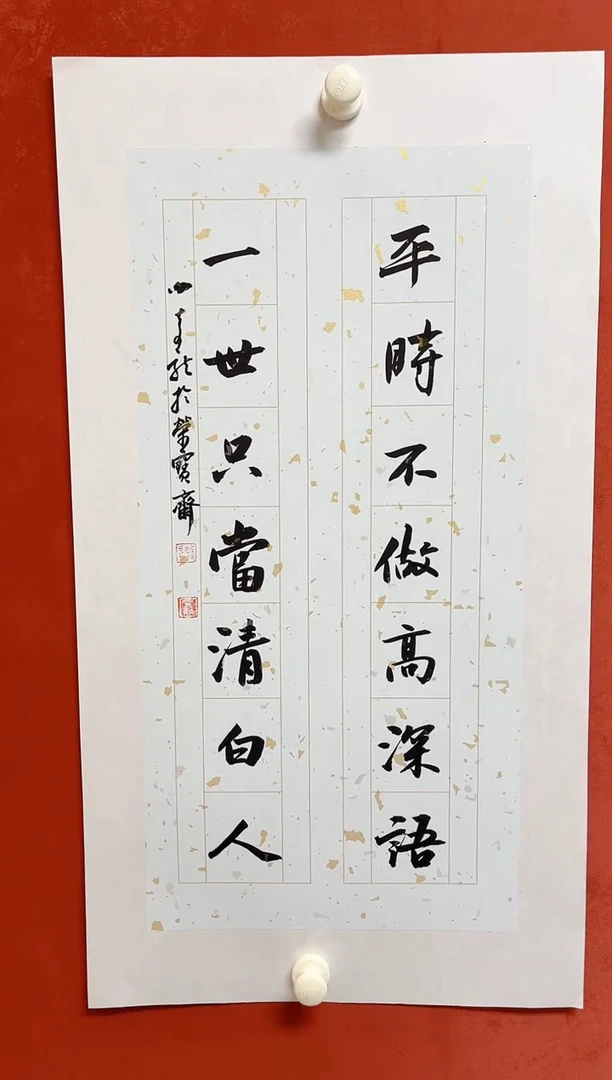 平時不做高深語
一世只當清白人
於榮寶齋